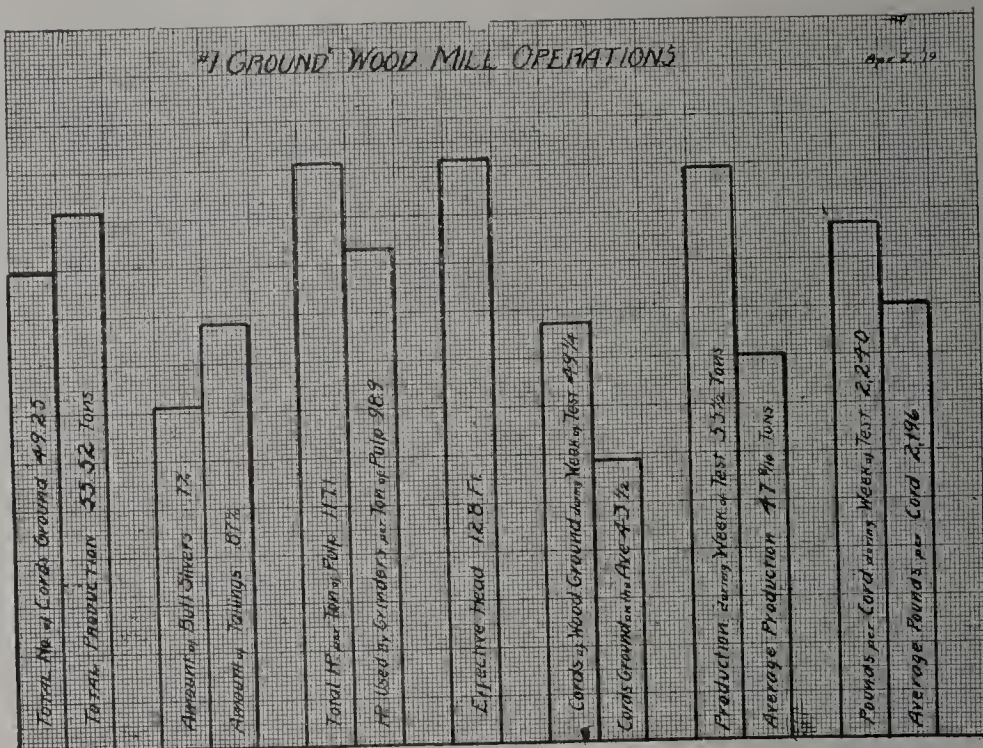 #1 GROUND WOOD MILL OPERATIONS
Apr 2, 19
Total No. of Cords Ground 49.25
Total Production 55.52 Tons
Amount of Bull Slivers .7%
Amount of Tailings .87%
Total H.P. per Ton of Pulp 117.1
H.P. Used by Grinders per Ton of Pulp 98.9
Effective Head 12.8 Ft.
Cords of Wood Ground during Week of Test 49 1/4
Cords Ground Ave 43 1/2
Production during Week of Test 55 1/2 Tons
Average Production 47 Tons
Pounds per Cord during Week of Test 2,240
Average Pounds per Cord 2,196